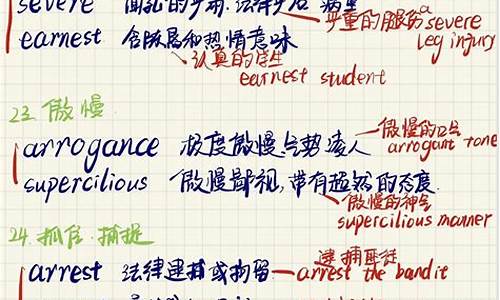 severe
严重的腿伤 a severe
leg injury
earnest 含威严和热情意味
认真的学生
earnest student
23. 傲慢
arrogance 极度傲慢.气势凌人
傲慢的口气
arrogant tone
supercilious 傲慢鄙视,带有超然的态度.
傲慢的神气
supercilious manner
24. 抓住.捕捉
arrest 法律逮捕或拘留
逮捕匪徒
arrest the bandit